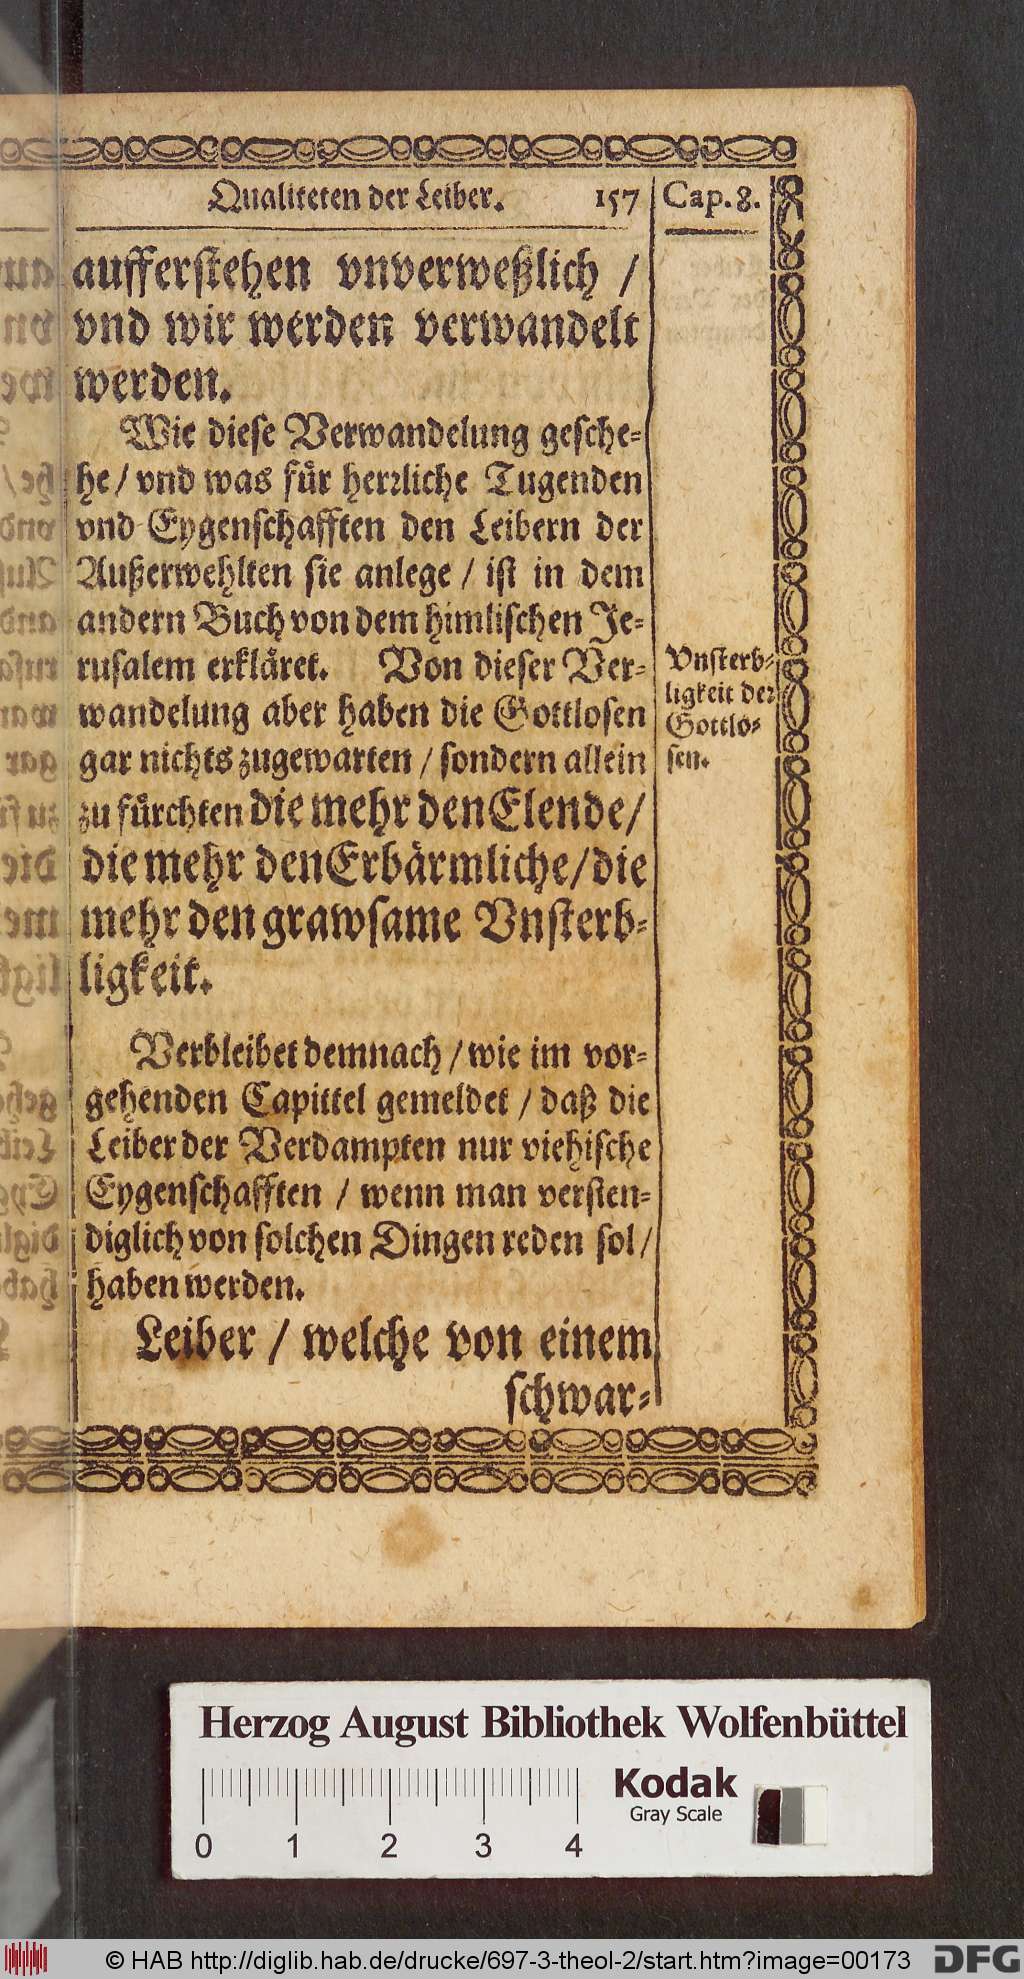 Qualiteten der Leiber. 157 Cap. 8.
aufferstehen vnverweßlich /
vnd wir werden verwandelt
werden.
Wie diese Verwandelung gesche-
he / vnd was fuͤr herꝛliche Tugenden
vnd Eygenschafften den Leibern der
Außerwehlten sie anlege / ist in dem
andern Buch von dem himlischen Je-
rusalem erklaͤret. Von dieser Ver-
wandelung aber haben die Gottlosen
gar nichts zugewarten / sondern allein
zu fuͤrchten die mehr den Elende /
die mehr den Erbaͤrmliche / die
mehr den grawsame Vnsterb-
ligkeit.
Vnsterb-
ligkeit der
Gottlo-
sen.
Verbleibet demnach / wie im vor-
gehenden Capittel gemeldet / daß die
Leiber der Verdampten nur viehische
Eygenschafften / wenn man versten-
diglich von solchen Dingen reden sol /
haben werden.
Leiber / welche von einem
schwar-
Herzog August Bibliothek Wolfenbüttel
Kodak
Gray Scale
0 1 2 3 4
© HAB http://diglib.hab.de/drucke/697-3-theol-2/start.htm?image=00173
DFG